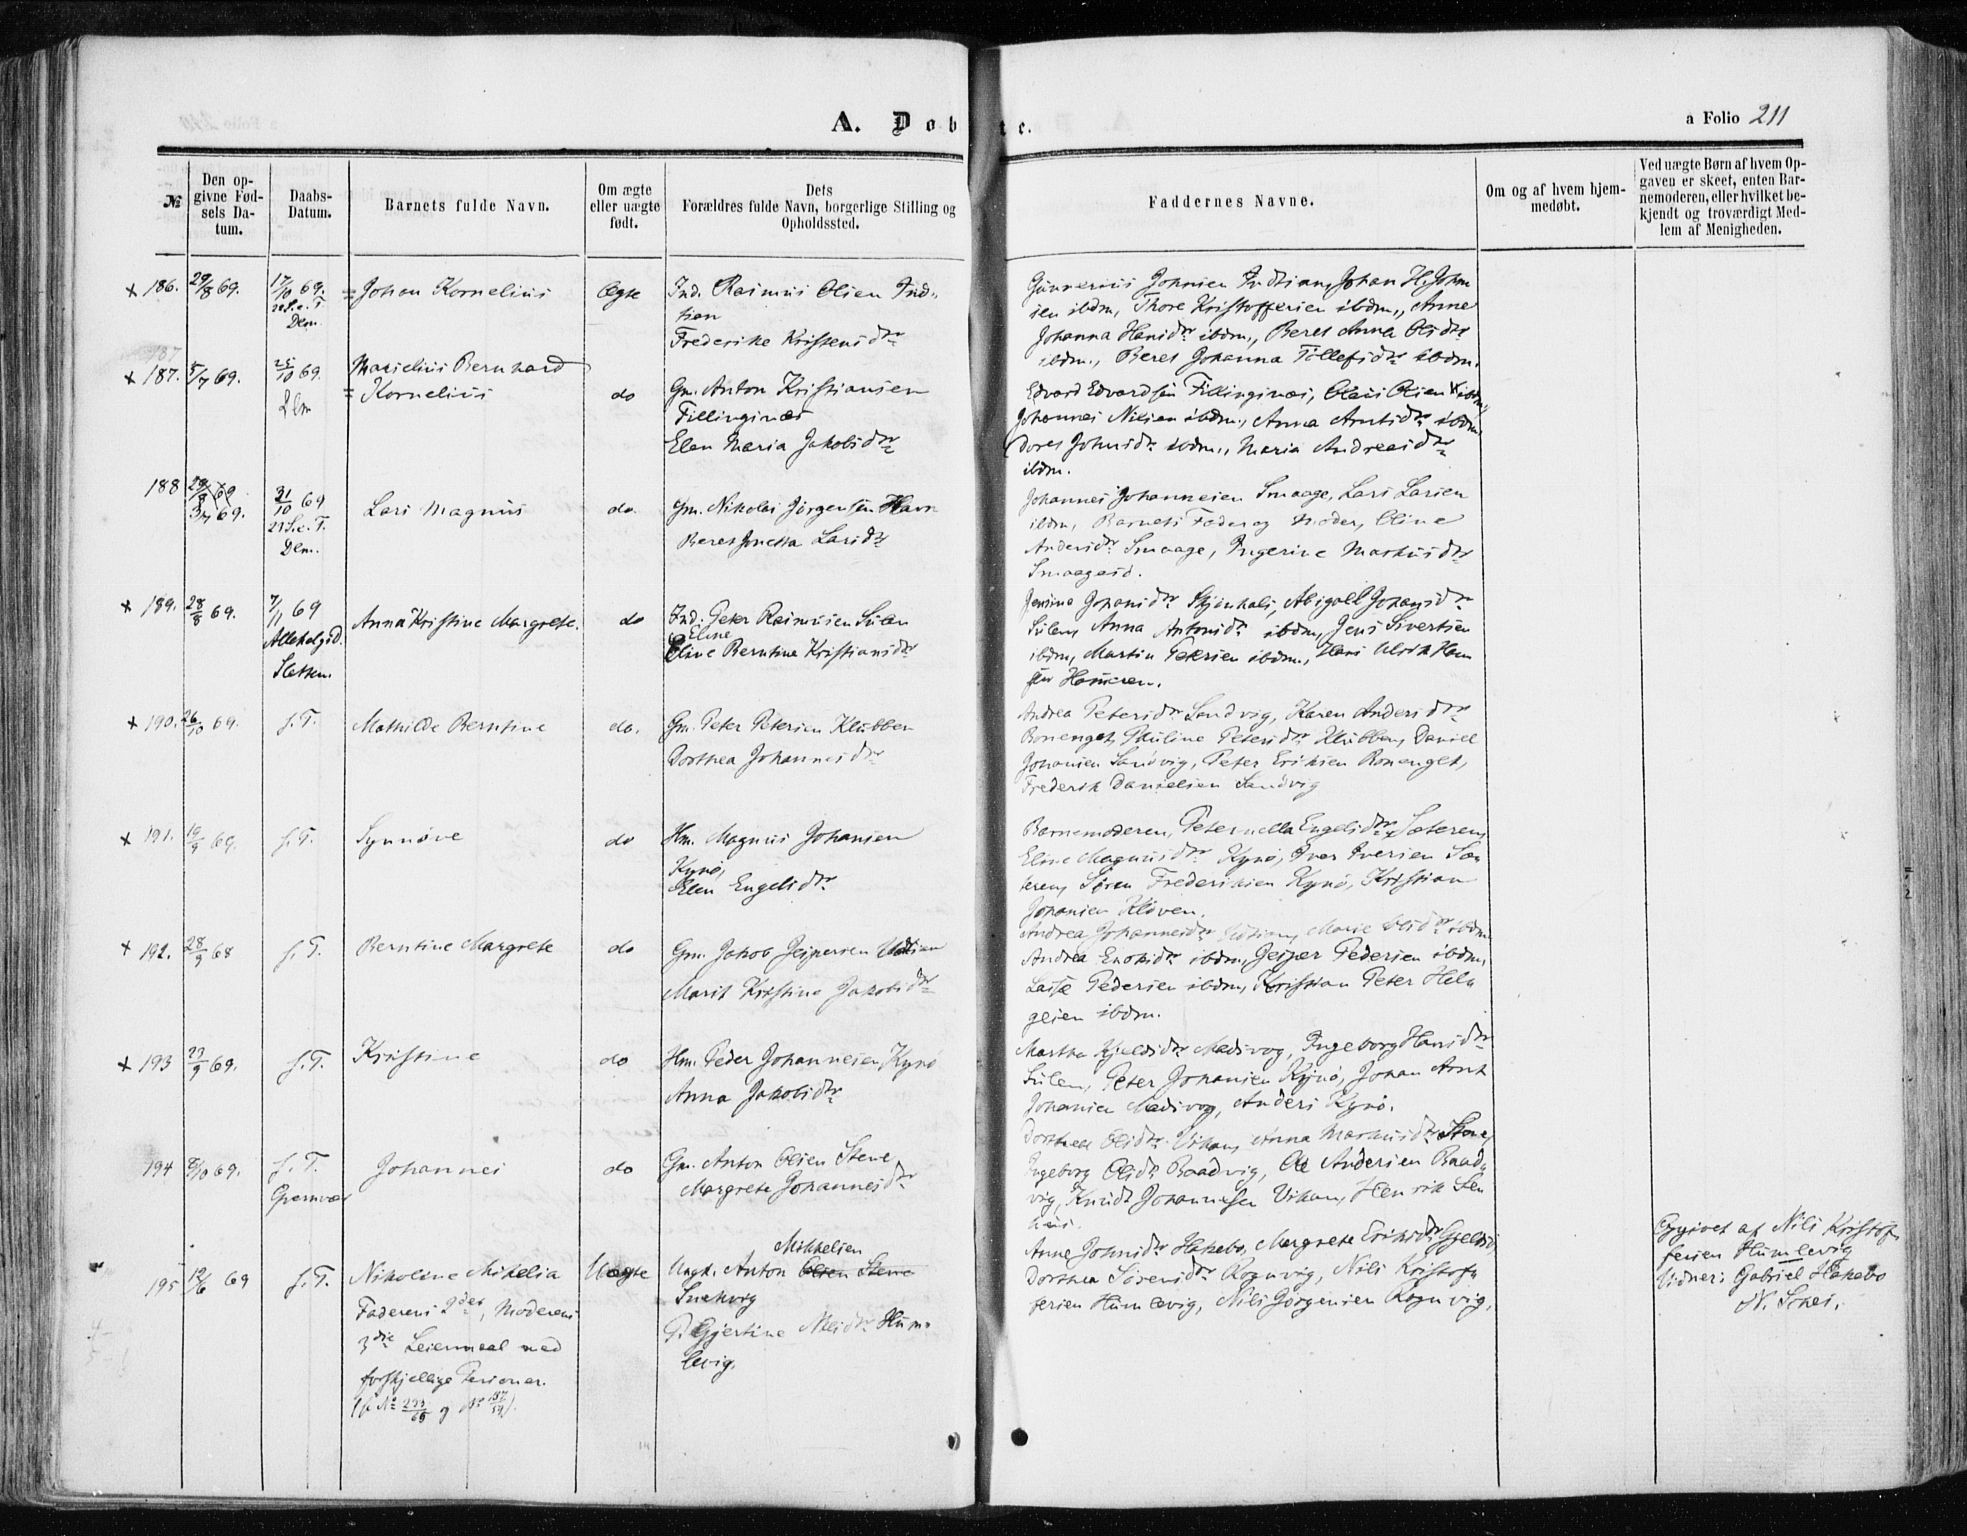 A. Døbte.
a Folio 211
№
Den opgivne Fødsels Datum.
Daabs-Datum.
Barnets fulde Navn.
Om ægte eller uægte født.
Dets Forældres fulde Navn, borgerlige Stilling og Opholdssted.
Faddernes Navne.
Om og af hvem hjemmedøbt.
Ved uægte Børn af hvem Opgaven er skeet, enten Barnemoderen, eller hvilket bekjendt og troværdigt Medlem af Menigheden.
+ 186. 29/8 69. 17/10 69. Johan Kornelius Ægte
Ind. Rasmus Olsen
Frederike Kristensdtr
Gunnerius Johnsen
sen ibdm, Thore Kristoffersen ibdm., Anne
Johanna Hansdtr ibdm., Beret Anna Olsdtr
ibdm., Beret Johanna Tollefsdtr ibdm.
+ 187. 5/7 69. 25/10 69. Marselius Bernhard
Kornelius do
Gm. Anton Kristiansen
Fillingsnæs
Elen Maria Jakobsdtr
Edvard Edvardsen Fillingsnæs, Olaus Olsen ibdm,
Johannes Nilsen ibdm., Anna Arntsdtr ibdm,
Doret Johnsdtr ibdm., Maria Andreasdtr
ibdm.
188 69. 31/10 69 Lars Magnus do.
21 S.e.T.
Dlm.
Gm. Nikolai Jørgensen Havn
Beret Jonetta Larsdtr
Johannes Johannesen Smaage, Lars Larsen
ibdm, Barnets Fader og Moder, Oline
Andersdtr Smaage, Ingerine Markusdtr
+ 189. 28/8 69. 7/11 69 Anna Kristine Margrete. do
Allehelgsd.
Sletten.
Ind. Peter Rasmussen Sulen
Eline
Berntine Kristiansdtr
Jensine Johansdtr Skjønhals, Abigael Johansdtr
Sulen, Anna Antonsdtr ibdm, Jens Sivertsen
ibdm, Martin Petersen ibdm., Hans Ulrik
Hammeren.
+ 190. 26/10 69. s.T. Mathilde Berntine do.
Gm. Peter Petersen Klubben
Dorthea Johannesdtr
Andrea Petersdtr Sandvig, Karen Andersdtr
Petersdtr Klubben, Daniel
Johansen Sandvig, Peter Eriksen
Frederik Danielsen Sandvig
+ 191. 19/9 69. s.T. Synnøve do
Hm. Magnus Johansen
Kynø,
Elen Engelsdtr
Barnemoderen, Peternella Engelsdtr Sæteren,
Eline Magnusdtr Kynø, Iver Iversen Sæ
teren, Søren Frederiksen Kynø, Kristian
Johansen Kløven.
+ 192. 28/9 68 s.T. Berntine Margrete do
Gm. Jakob Jespersen
Marit Kristine Jakobsdtr
Andrea Johannesdtr Marie Olsdtr ibdm
Andrea Enoksdtr ibdm, Jesper Pedersen ibdm,
Lasse Pedersen ibdm, Kristian Peter Hel
gesen ibdm.
+ 193 23/9 69. s.T. Kristine do
Hm. Peder Johannesen Kynø
Anna Jakobsdtr
Martha Kjeldsdtr Medsvog, Ingeborg Hansdtr
Sulen, Peter Johansen Kynø, Johan Arnt
Johansen Medsvog, Anders Kynø.
194 8/10 69. s.T. Johannes do
Gm. Anton Olsen Stene
Margrete Johannesdtr
Dorthea Olsdtr Vikan, Anna Markusdtr Stene,
Ingeborg Olsdtr Baadvig, Ole Andersen Baad
vig, Knudt Johannesen Vikan, Henrik
195 12/6 69 s.T. Nikoline Mikelia Uægte
Faderens 2det, Moderens
3die Leiermaal med
forskjellige Personer.
Mikkelsen
Ungk. Anton Olsen Stene
P. Gjertine Nilsdtr Hum
levig,
Anne Johnsdtr Hakebo, Margrete Eriksdtr
Dorthea Sørensdtr Rognvig, Nils Kristof
fersen Humlevig, Nils Jørgensen Rognvig.
Opgivet af Nils Kristof
fersen Humlevig
Vidner: Gabriel Hakebo
N. Schei.